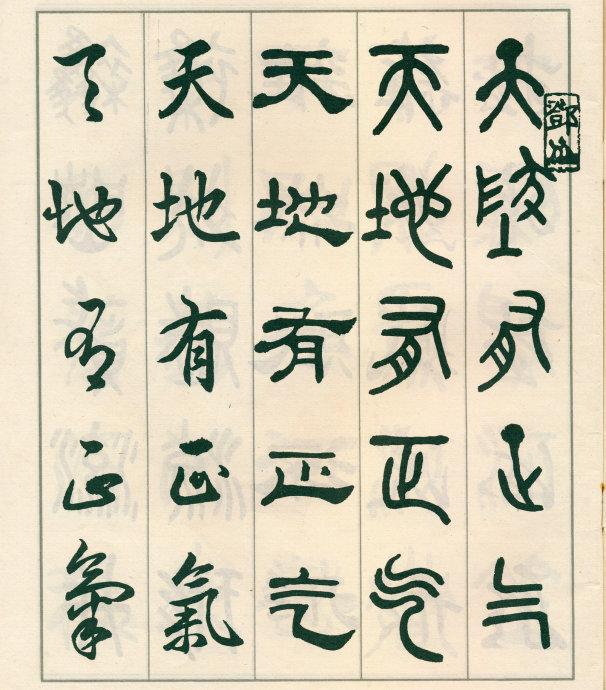 天地有正气
天地有正气
天地有正气
天地有正氣
天地有正氣
鄧